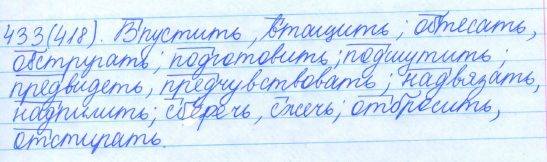 433(418). Впустить, втащить; обтесать,
обстругать; подготовить, подшутить;
предвидеть, предчувствовать; надвязать,
надпилить; сберечь, сжечь; отбросить,
отстирать.